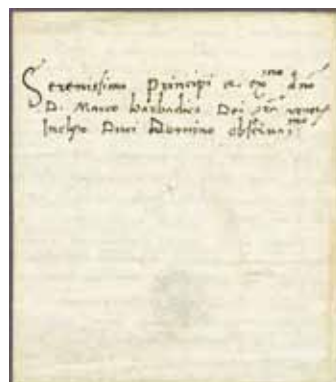 Serenissimo principi et ex.mo dno
D. Marco barbadico Dei gra
Inclyto Duci Domino observa.mo